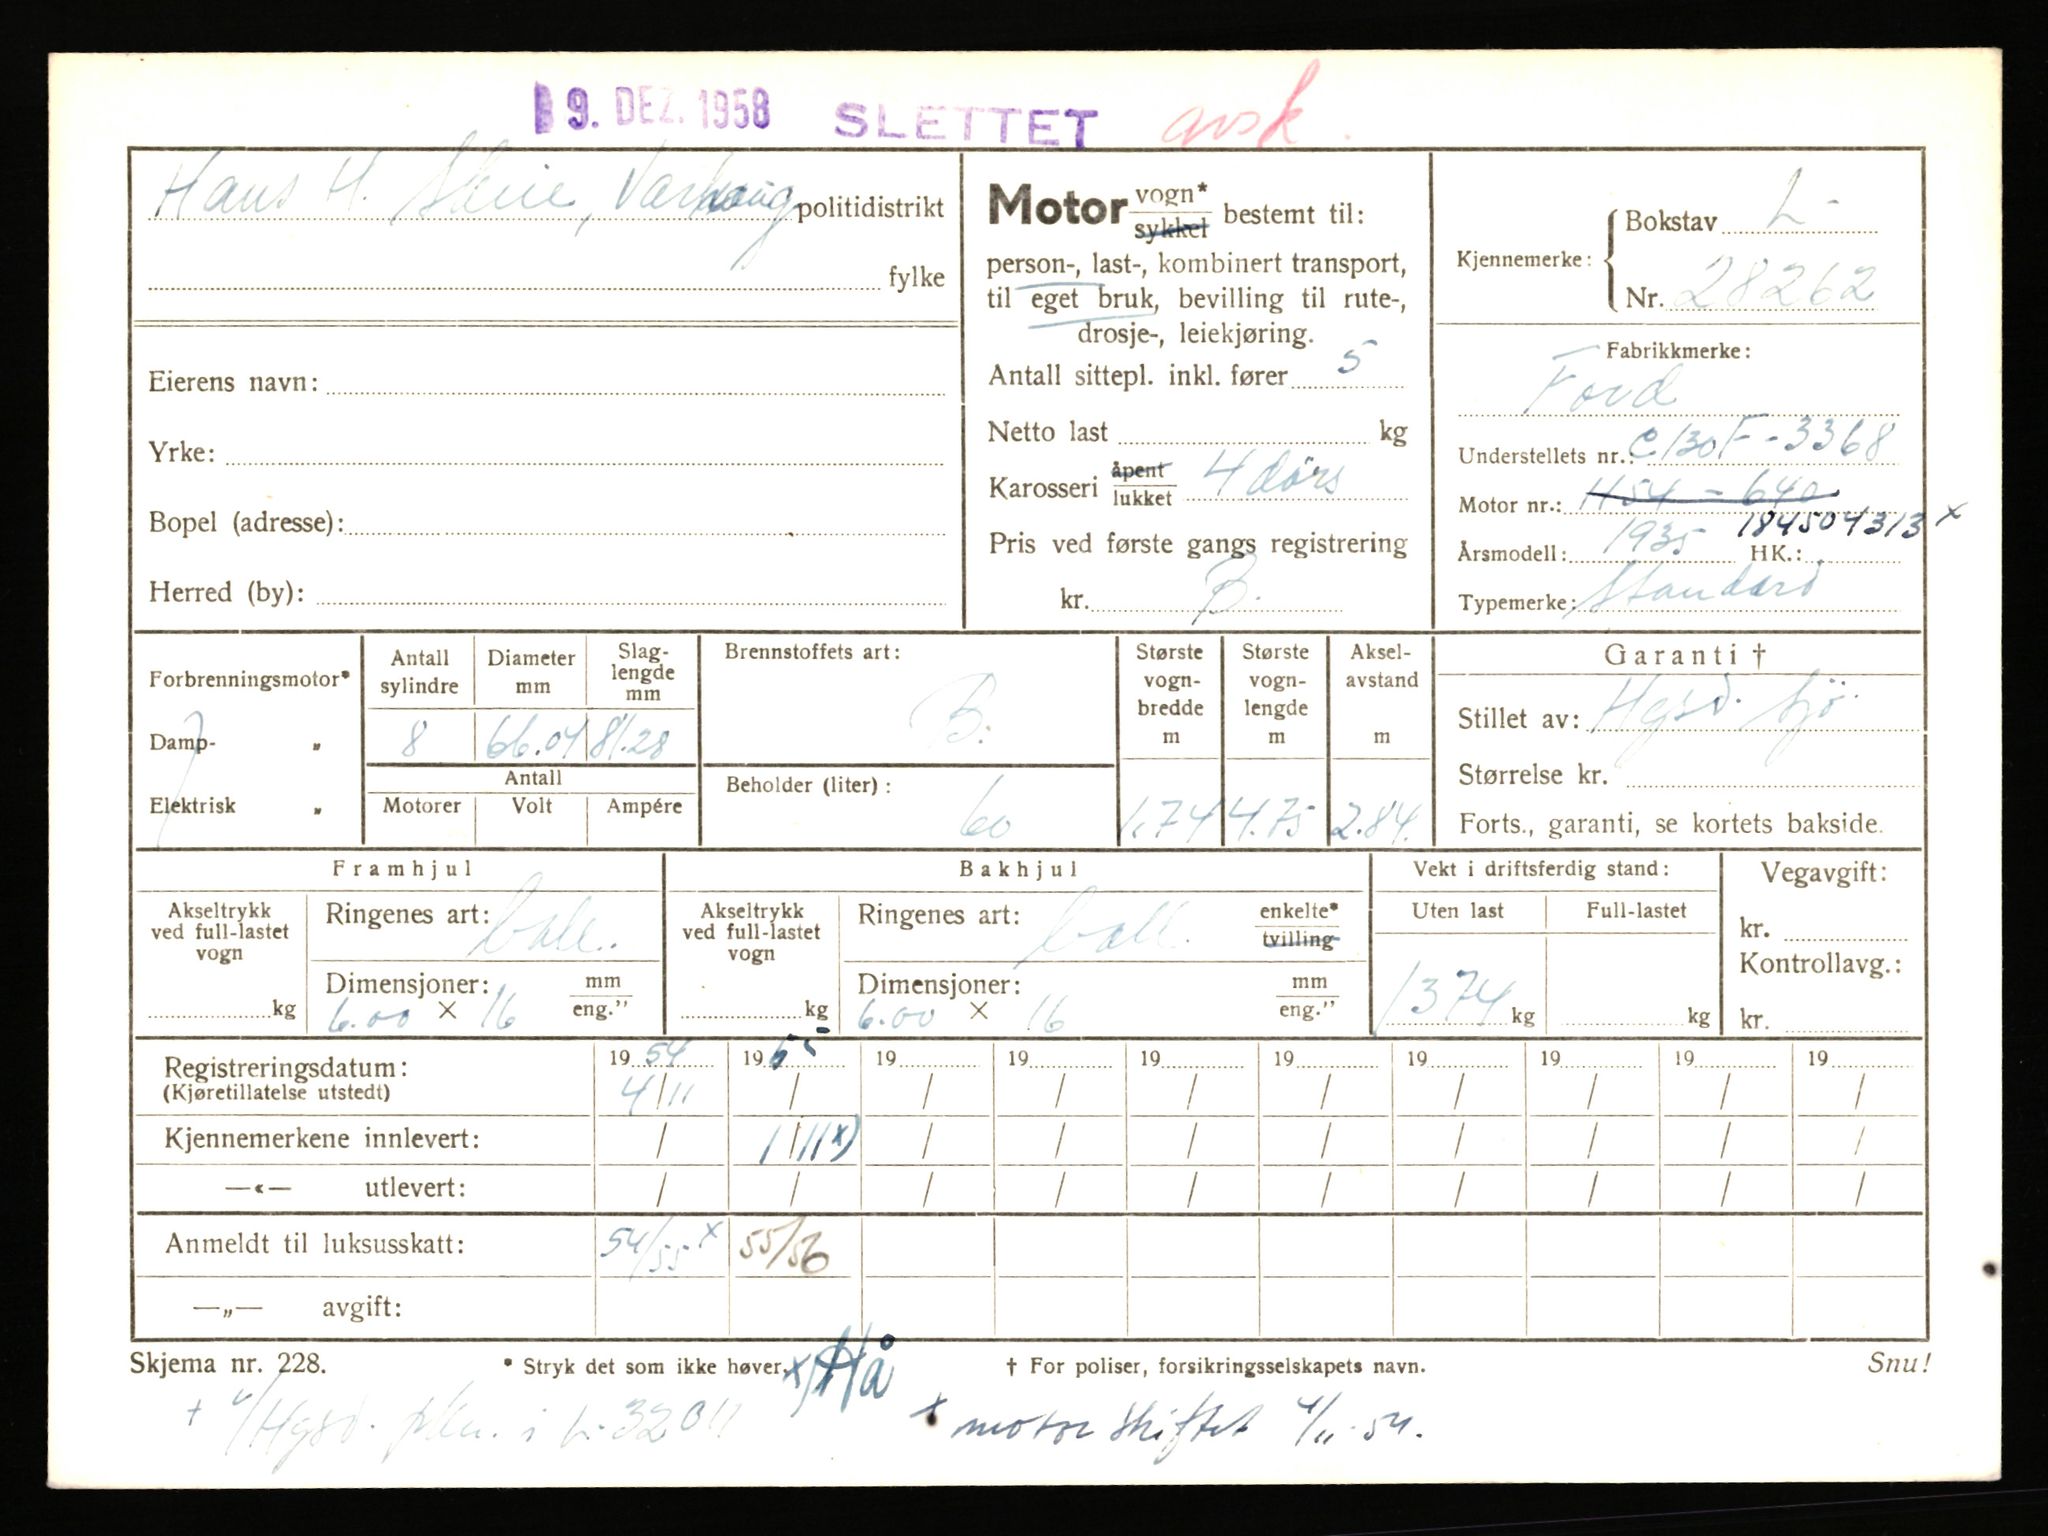 9. DEZ. 1958 SLETTET avsk.
Hans H. Skeie, Varhaug politidistrikt
fylke
Eierens navn:
Yrke:
Bopel (adresse):
Herred (by):
Motor vogn* / sykkel bestemt til:
person-, last-, kombinert transport,
til eget bruk, bevilling til rute-,
drosje-, leiekjøring.
Antall sittepl. inkl. fører 5
Netto last kg
Karosseri åpent / lukket 4 dörs
Pris ved første gangs registrering
kr. B.
Kjennemerke: Bokstav L-
Nr. 28262
Fabrikkmerke:
Ford
Understellets nr.: C130F-3368
Motor nr.: H54 - 640
184504313 x
Årsmodell: 1935 HK.:
Typemerke: Standard
Forbrenningsmotor*
Damp- "
Elektrisk "
Antall sylindre
8
Diameter mm
66.04
Slag-
lengde
mm
81.28
Antall
Motorer Volt Ampére
Brennstoffets art:
B.
Beholder (liter):
60
Største
vogn-
bredde
m
1.74
Største
vogn-
lengde
m
4.75
Aksel-
avstand
m
2.84.
Garanti †
Stillet av: Hgsd. Sjö.
Størrelse kr.
Forts., garanti, se kortets bakside.
Framhjul
Akseltrykk
ved full-lastet
vogn
kg
Ringenes art: ball.
Dimensjoner: mm / eng."
6.00 × 16
Bakhjul
Akseltrykk
ved full-lastet
vogn
kg
Ringenes art: ball. enkelte* / tvilling
Dimensjoner: mm / eng."
6.00 × 16
Vekt i driftsferdig stand:
Uten last Full-lastet
1374 kg kg
Vegavgift:
kr.
Kontrollavg.:
kr.
Registreringsdatum: 19 54 19 55 19 19 19 19 19 19 19 19
(Kjøretillatelse utstedt) 4/11 / / / / / / / / /
Kjennemerkene innlevert: / 1/11 x) / / / / / / / /
—«— utlevert: / / / / / / / / / /
Anmeldt til luksusskatt: 54/55 x 55/56
—„— avgift:
Skjema nr. 228. * Stryk det som ikke høver. x) Hå † For poliser, forsikringsselskapets navn. Snu!
+ 4/Hgsd. i L-32011 x motor skiftet 4/11-54.